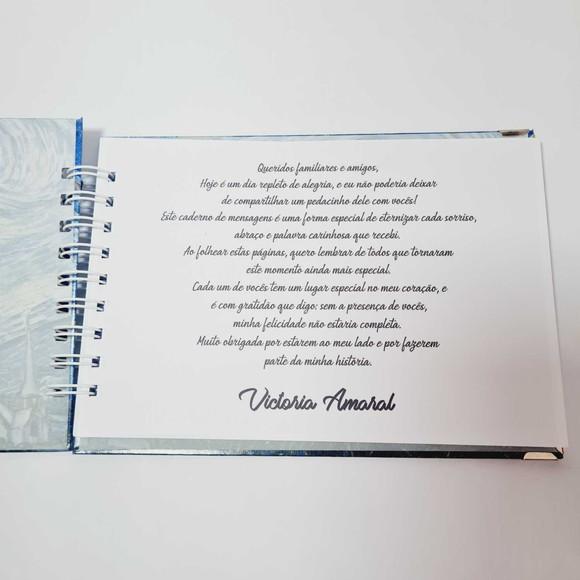 Queridos familiares e amigos,
Hoje é um dia repleto de alegria, e eu não poderia deixar
de compartilhar um pedacinho dele com vocês!
Este caderno de mensagens é uma forma especial de eternizar cada sorriso,
abraço e palavra carinhosa que recebi.
Ao folhear estas páginas, quero lembrar de todos que tornaram
este momento ainda mais especial.
Cada um de vocês tem um lugar especial no meu coração, e
é com gratidão que digo: sem a presença de vocês,
minha felicidade não estaria completa.
Muito obrigada por estarem ao meu lado e por fazerem
parte da minha história.
Victoria Amaral